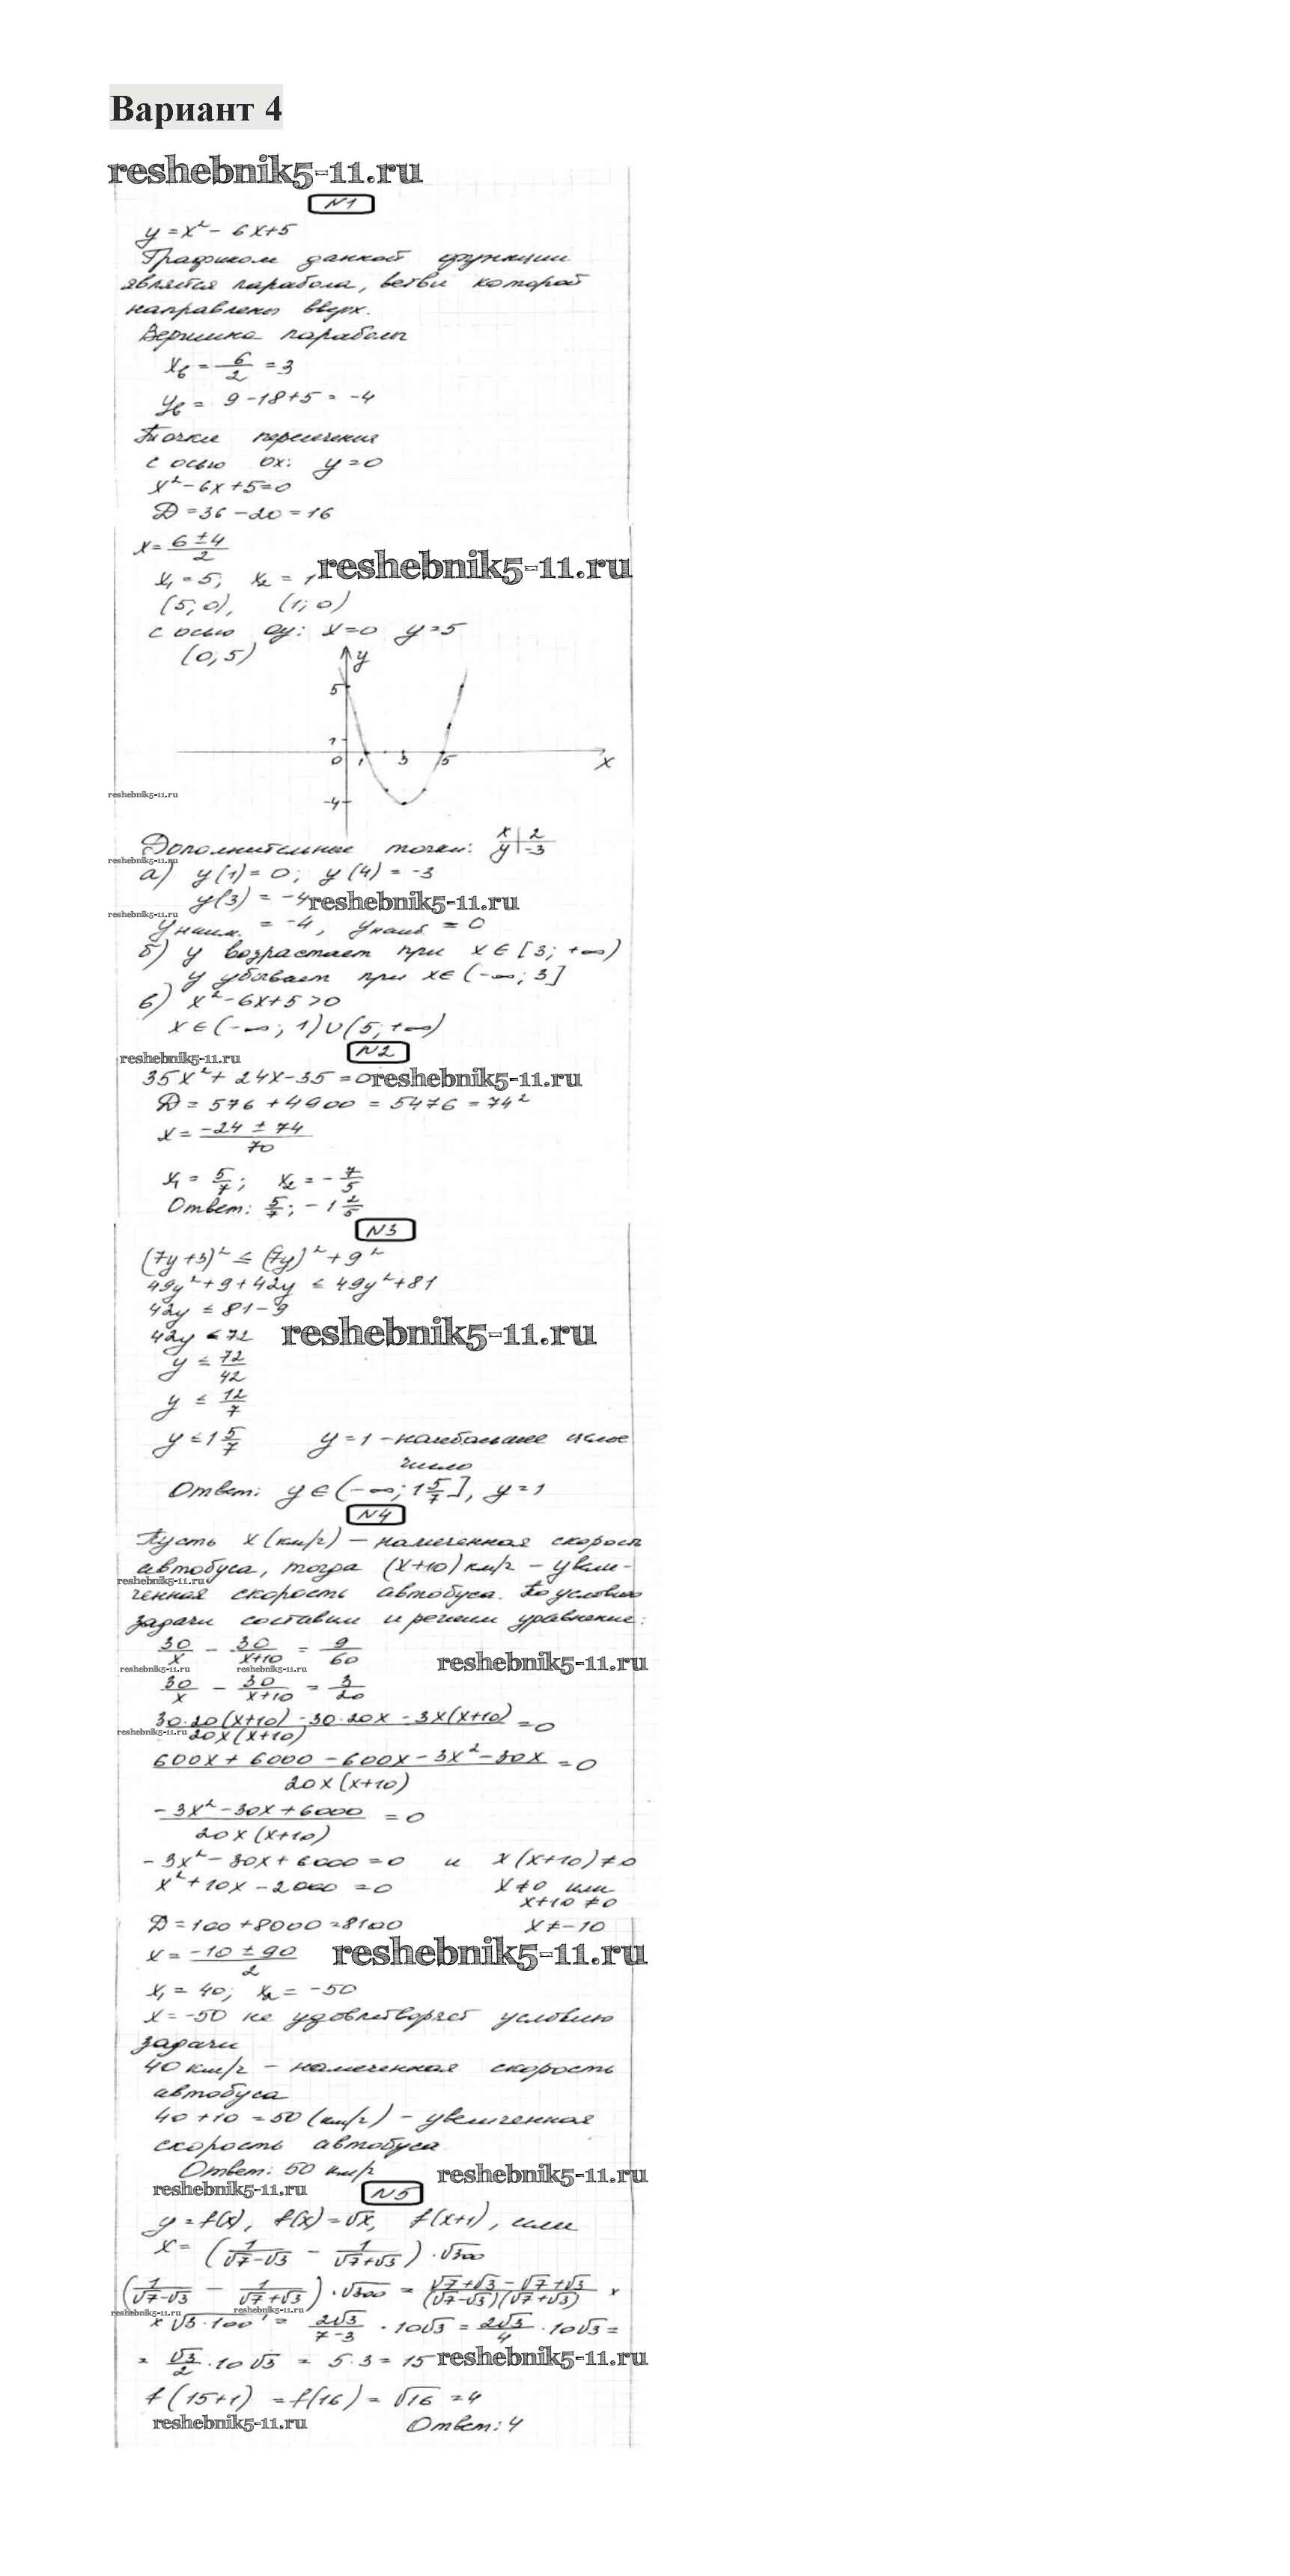 Вариант 4
reshebnik5-11.ru
N1
y = x² - 6x+5
Графиком данной функции
является парабола, ветви которой
направлены вверх.
Вершина параболы
x₆ = 6/2 = 3
y₆ = 9-18+5 = -4
Точки пересечения
с осью ox: y=0
x²-6x+5=0
D = 36-20 = 16
x = (6±4)/2
reshebnik5-11.ru
x₁ = 5; x₂ = 1
(5;0), (1;0)
с осью oy: x=0 y=5
(0;5)
y
5
1
0 1 3 5 x
-4
reshebnik5-11.ru
Дополнительные точки: x | 2
y | -3
reshebnik5-11.ru
а) y(1) = 0; y(4) = -3
y(3) = -4 reshebnik5-11.ru
reshebnik5-11.ru
yнаим. = -4, yнаиб. = 0
б) y возрастает при x ∈ [3; +∞)
y убывает при x ∈ (-∞; 3]
в) x²-6x+5>0
x ∈ (-∞; 1)∪(5; +∞)
N2
reshebnik5-11.ru
35x² + 24x-35 = 0 reshebnik5-11.ru
D = 576 + 4900 = 5476 = 74²
x = (-24 ± 74)/70
x₁ = 5/7; x₂ = -7/5
Ответ: 5/7; -1 2/5
N3
(7y+3)² ≤ (7y)² + 9²
49y²+9+42y ≤ 49y²+81
42y ≤ 81-9
42y ≤ 72 reshebnik5-11.ru
y ≤ 72/42
y ≤ 12/7
y ≤ 1 5/7 y = 1 - наибольшее целое
число
Ответ: y ∈ (-∞; 1 5/7], y = 1
N4
Пусть x (км/ч) - намеченная скорост
автобуса, тогда (x+10) км/ч - увели-
reshebnik5-11.ru
ченная скорость автобуса. По условию
задачи составим и решим уравнение:
30/x - 30/(x+10) = 9/60
reshebnik5-11.ru
reshebnik5-11.ru reshebnik5-11.ru
30/x - 30/(x+10) = 3/20
(30·20(x+10) - 30·20x - 3x(x+10))/(20x(x+10)) = 0
reshebnik5-11.ru
(600x + 6000 - 600x - 3x² - 30x)/(20x(x+10)) = 0
(-3x² - 30x + 6000)/(20x(x+10)) = 0
-3x² - 30x + 6000 = 0 и x(x+10) ≠ 0
x² + 10x - 2000 = 0 x ≠ 0 или
x+10 ≠ 0
D = 100 + 8000 = 8100 x ≠ -10
x = (-10 ± 90)/2 reshebnik5-11.ru
x₁ = 40; x₂ = -50
x = -50 не удовлетворяет условию
задачи
40 км/ч - намеченная скорость
автобуса
40+10 = 50 (км/ч) - увеличенная
скорость автобуса
Ответ: 50 км/ч reshebnik5-11.ru
reshebnik5-11.ru
N5
y = f(x), f(x) = √x, f(x+1), или
x = (1/(√7-√3) - 1/(√7+√3)) · √300
(1/(√7-√3) - 1/(√7+√3)) · √300 = (√7+√3-√7+√3)/((√7-√3)(√7+√3)) ×
reshebnik5-11.ru reshebnik5-11.ru
× √3·100 = 2√3/(7-3) · 10√3 = 2√3/4 · 10√3 =
= √3/2 · 10√3 = 5·3 = 15 reshebnik5-11.ru
f(15+1) = f(16) = √16 = 4
reshebnik5-11.ru Ответ: 4